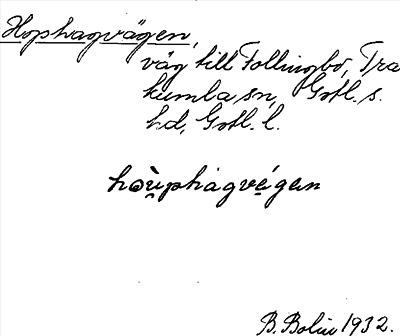 Hophagvägen,
väg till Follingbo, Tra
kumla sn, Gotl. s.
hd, Gotl. l.
hòu̯phàgvę́gęn
B. Bolin 1932.